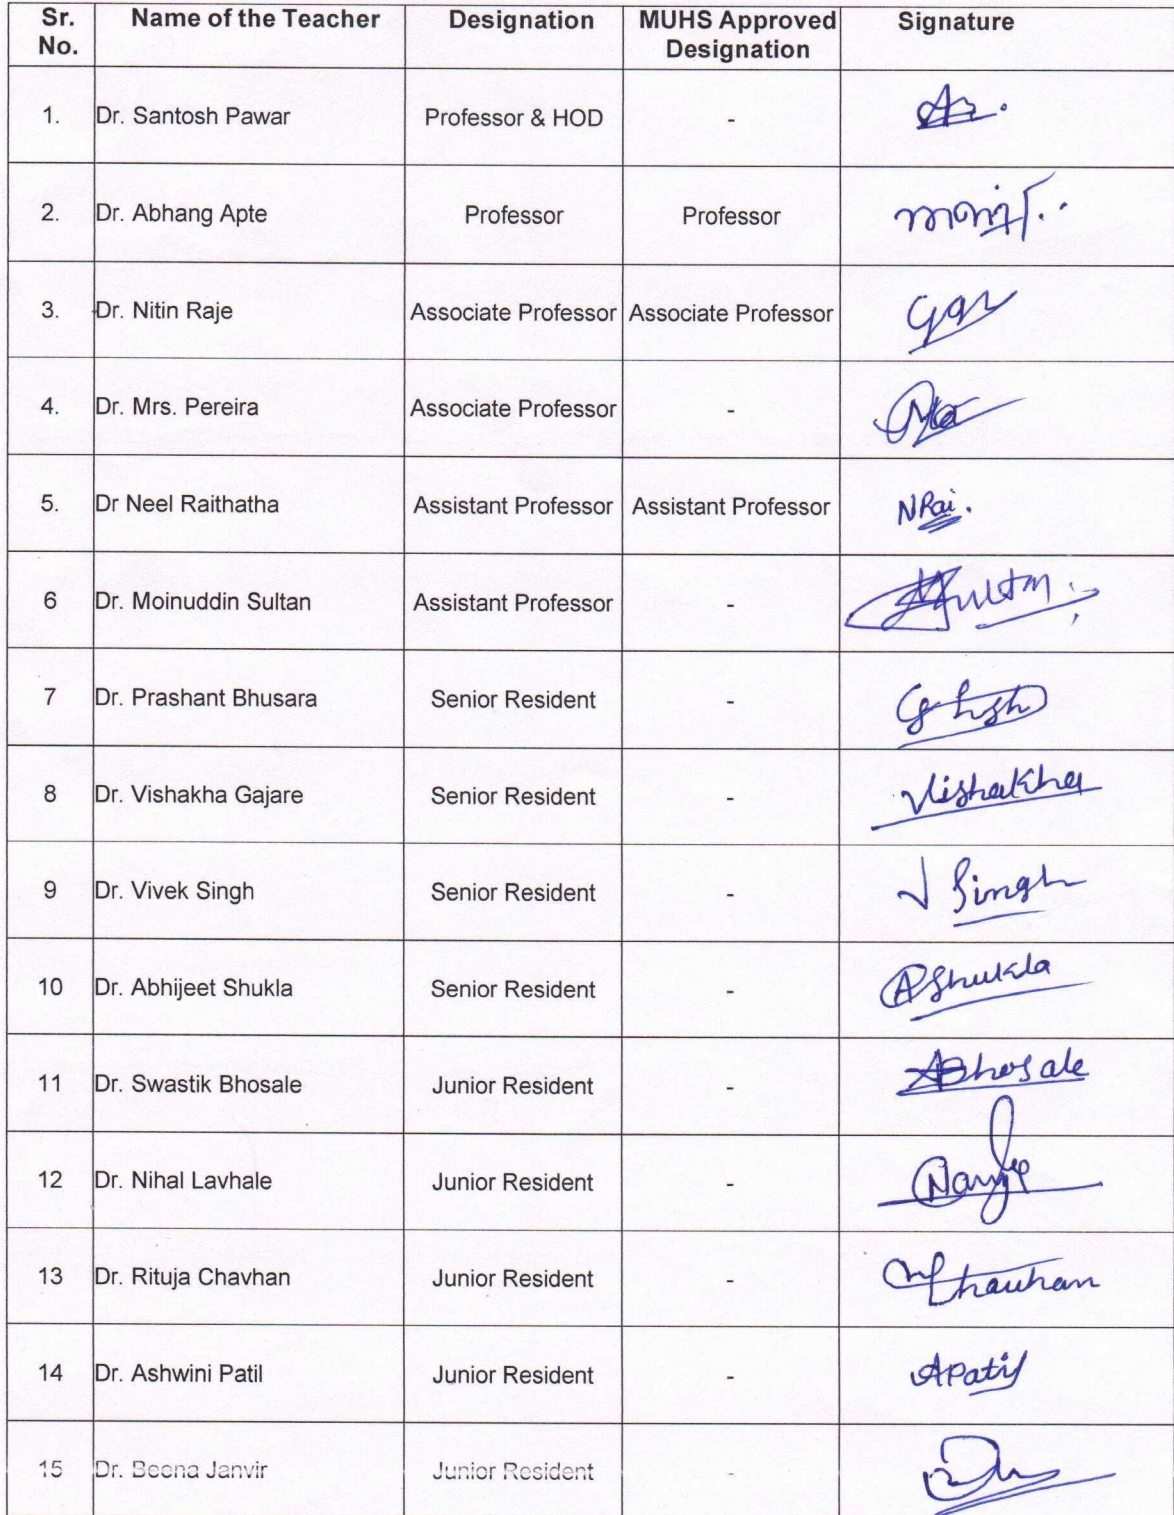 Sr. No. Name of the Teacher Designation MUHS Approved Designation Signature
1. Dr. Santosh Pawar Professor & HOD -
2. Dr. Abhang Apte Professor Professor
3. Dr. Nitin Raje Associate Professor Associate Professor
4. Dr. Mrs. Pereira Associate Professor -
5. Dr Neel Raithatha Assistant Professor Assistant Professor NRai.
6 Dr. Moinuddin Sultan Assistant Professor -
7 Dr. Prashant Bhusara Senior Resident -
8 Dr. Vishakha Gajare Senior Resident - Vishakha
9 Dr. Vivek Singh Senior Resident - V Singh
10 Dr. Abhijeet Shukla Senior Resident - AShukla
11 Dr. Swastik Bhosale Junior Resident - ABhosale
12 Dr. Nihal Lavhale Junior Resident -
13 Dr. Rituja Chavhan Junior Resident -
14 Dr. Ashwini Patil Junior Resident - APatil
15 Dr. Beena Janvir Junior Resident -